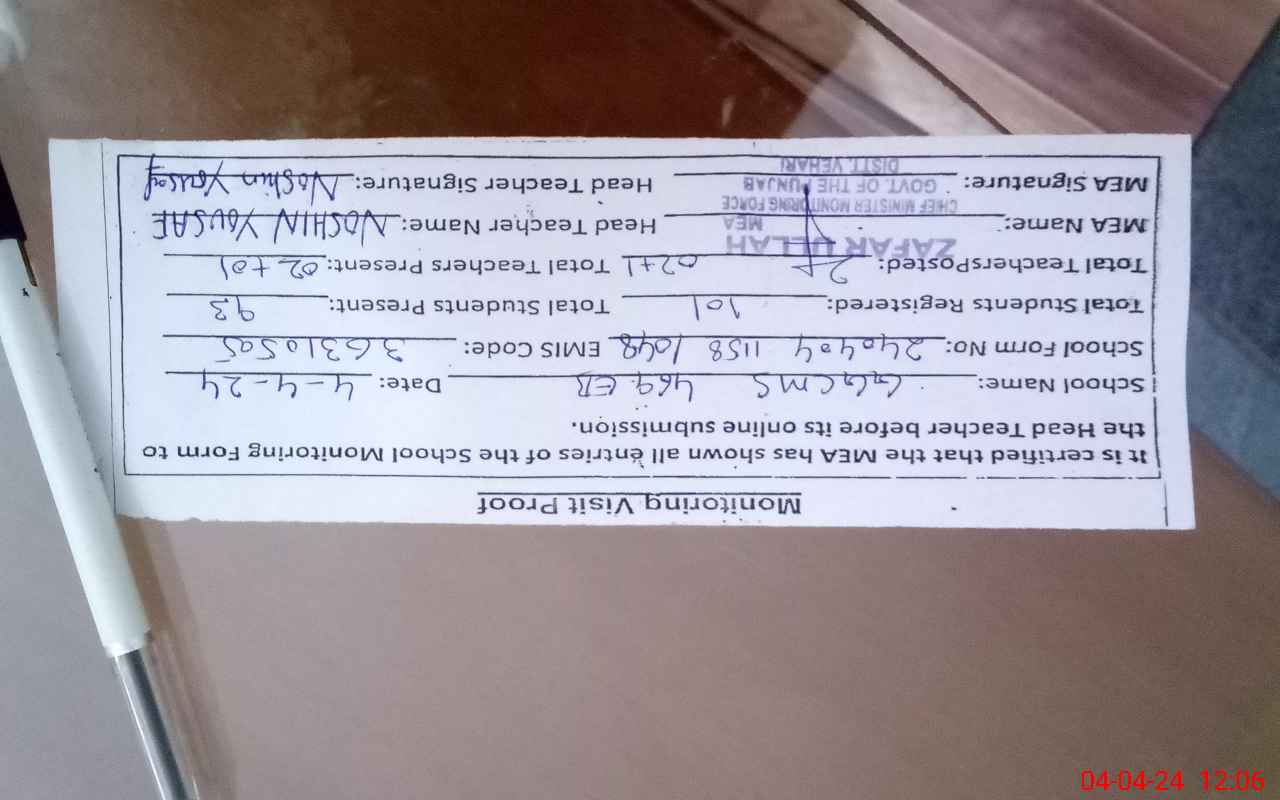 Monitoring Visit Proof
It is certified that the MEA has shown all entries of the School Monitoring Form to
the Head Teacher before its online submission.
School Name: GGCMS 469. EB Date: 4-4-24
School Form No: 240404 1158 1048 EMIS Code: 36310505
Total Students Registered: 101 Total Students Present: 93
Total TeachersPosted: 02+1 Total Teachers Present: 02+01
MEA Name: ZAFAR ULLAH Head Teacher Name: NOSHIN YOUSAF
MEA
CHIEF MINISTER MONITORING FORCE
MEA Signature: GOVT. OF THE PUNJAB Head Teacher Signature: Noshin Yousaf
DISTT. VEHARI
04-04-24 12:06